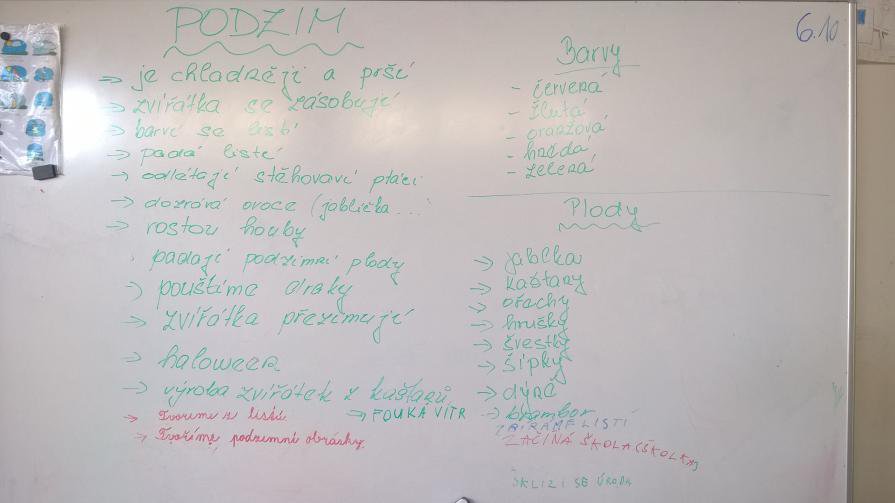 PODZIM
6.10
→ je chladněji a prší
→ zvířátka se zásobují
→ barví se listí
→ padá listí
→ odlétají stěhovaví ptáci
→ dozrává ovoce (jablíčka...
→ rostou houby
padají podzimní plody
→ pouštíme draky
→ zvířátka přezimují
→ haloween
→ výroba zvířátek z kaštanů
→ Tvoříme z listů.
→ FOUKÁ VÍTR
→ Tvoříme podzimní obrázky.
Barvy
- červená
- žlutá
- oranžová
- hnědá
- zelená
Plody
→ jablka
→ kaštany
→ ořechy
→ hrušky
→ švestky
→ šípky
→ dýně
→ brambor
SBÍRÁME LISTÍ
ZAČÍNÁ ŠKOLA (ŠKOLKA)
SKLÍZÍ SE ÚRODA